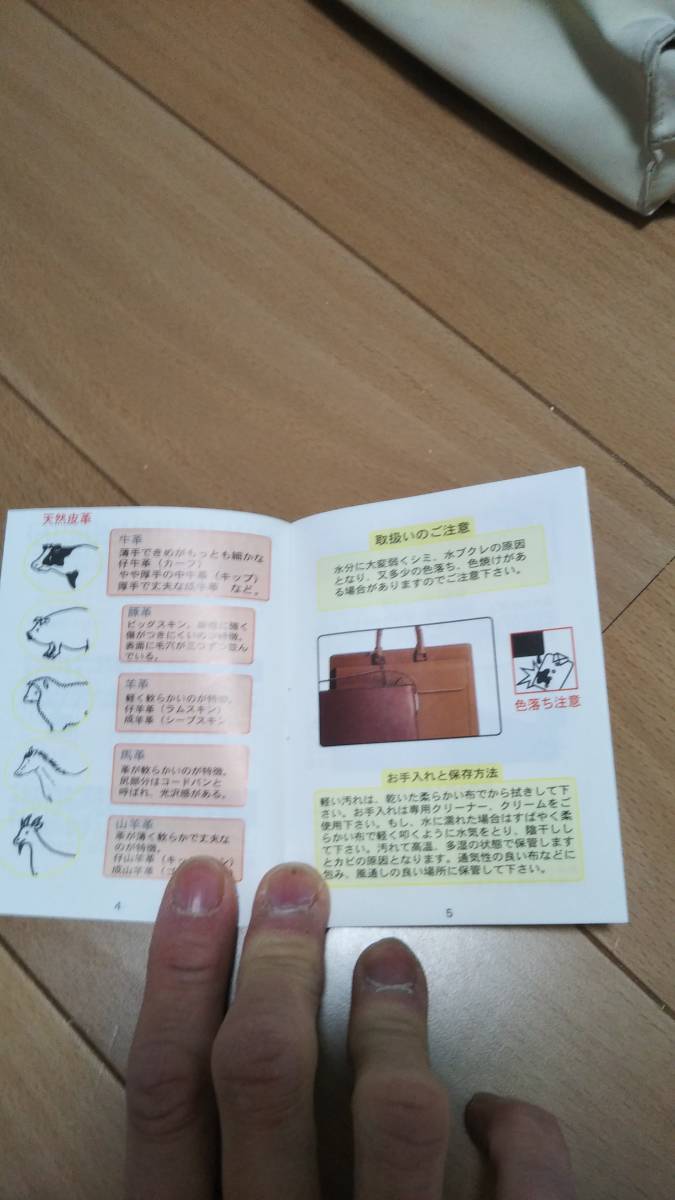 天然皮革
牛革
薄手できめがもっとも細かな
仔牛革（カーフ）
やや厚手の中牛革（キップ）
厚手で丈夫な成牛革 など。
豚革
ピッグスキン。
傷がつきにくいのが特徴。
表面に毛穴が三つずつ並ん
でいる。
羊革
軽く軟らかいのが特徴。
仔羊革（ラムスキン）
成羊革（シープスキン
馬革
革が軟らかいのが特徴。
尻部分はコードバンと
呼ばれ、光沢感がある。
山羊革
革が薄く軟らかで丈夫な
のが特徴。
仔山羊革（キッ
成山羊革（
4
取扱いのご注意
水分に大変弱くシミ、水ブクレの原因
となり、又多少の色落ち、色焼けがあ
る場合がありますのでご注意下さい。
色落ち注意
お手入れと保存方法
軽い汚れは、乾いた柔らかい布でから拭きして下
さい。お手入れは専用クリーナー、クリームをご
使用下さい。もし、水に濡れた場合はすばやく柔
らかい布で軽く叩くように水気をとり、陰干しし
て下さい。汚れて高温、多湿の状態で保管します
とカビの原因となります。通気性の良い布などに
包み、風通しの良い場所に保管して下さい。
5